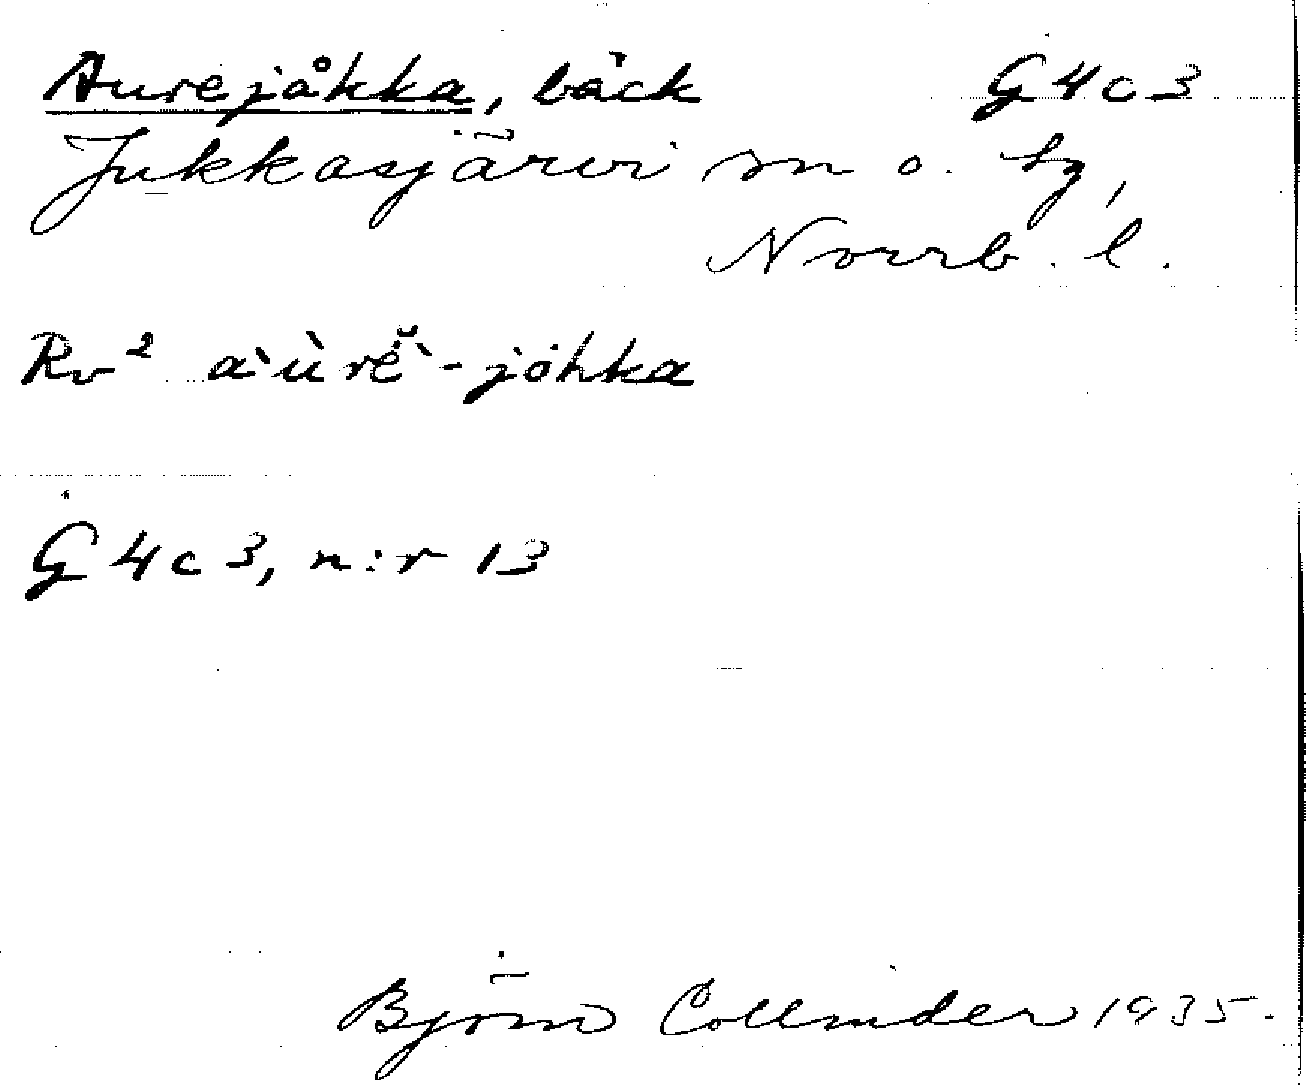 Aurejåkka, bäck G4c3
Jukkasjärvi sn o. tg,
Norrb. l.
Rv² a`ùrĕ`-jåhka
G4c3, n:r 13
Björn Collinder 1935.